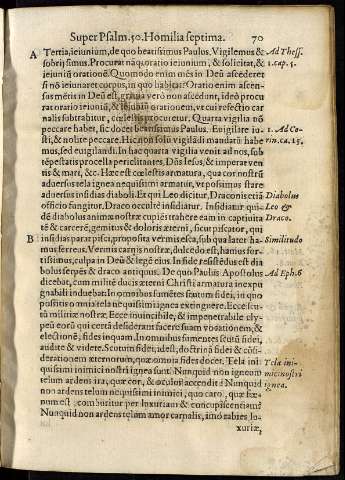 Super Psalm. 50. Homilia septima. 70
A Tertia, ieiunium, de quo beatissimus Paulus. Vigilemus & Ad Thess.
sobrij simus. Procurat nāq; oratio ieiunium, & solicitat, & 1. cap. 5.
ieiuniū orationē. Quomodo enim mēs in Deū ascederet
si nō ieiunaret corpus, in quo habitat? Oratio enim ascen-
sus mētis in Deū est, grauia verò non ascendunt, ideò procu
rat oratio ieiuniū, & ieiuniū orationem, vt cui refectio car
nalis subtrahitur, cœlestis procuretur. Quarta vigilia nō
peccare habet, sic docet beatissimus Paulus. Euigilate iu- 1. Ad Co-
sti, & nolite peccare. Hic non solū vigilādi mandatū habe rin. ca. 15.
mus, sed euigilandi. In hac quarta vigilia venit ad nos, sub
tēpestatis procella periclitātes, Dñs Iesus, & imperat ven
tis & mari, &c. Hæc est cœlestis armatura, qua cor nostrū
aduersus tela ignea nequissimi armatur, vt possimus stare
aduersus insidias diaboli. Et qui Leo dicitur, Draconis etiā Diabolus
officio fungitur. Draco occultè insidiatur. Insidiatur qui- Leo &
dē diabolus animæ nostræ cupiēs trahere eam in captiuita Draco.
tē & carcerē, gemitus & doloris æterni, sicut piscator, qui
B insidias parat pisci, proposita vermis esca, sub qua later ha- Similitudo
mus ferreus. Vermis carnis nostræ, dulcedo est, hamus for-
tissimus, culpa in Deū & legē eius. In fide resistēdus est dia
bolus serpēs & draco antiquus. De quo Paulus Apostolus Ad Eph. 6
dicebat, cum militē ducis æterni Christi armatura inexpu
gnabili induebat. In omnibus sumētes scutum fidei, in quo
possitis omnia tela nequissimi ignea extinguere. Ecce scu-
tū militiæ nostræ. Ecce inuincibile, & impenetrabile cly-
peū eorū qui certā desiderant facere suam vocationem, &
electionē, fides inquam. In omnibus sumentes scutū fidei,
audite & videte. Scutum fidei, id est, doctrinā fidei & cōsi-
derationem æternorum, quæ omnia fides docet. Tela ini Tela ini-
quissimi inimici nostri ignea sunt. Nunquid non igneum mici nostri
telum ardens ira, quæ cor, & oculos accendit? Nunquid ignea.
non ardens telum nequissimi inimici, quo caro, quæ fœ-
num est, comburitur per luxuriam & concupiscentiam?
Nunquid non ardens telum amor carnalis, imò rabies lu-
xuriæ,